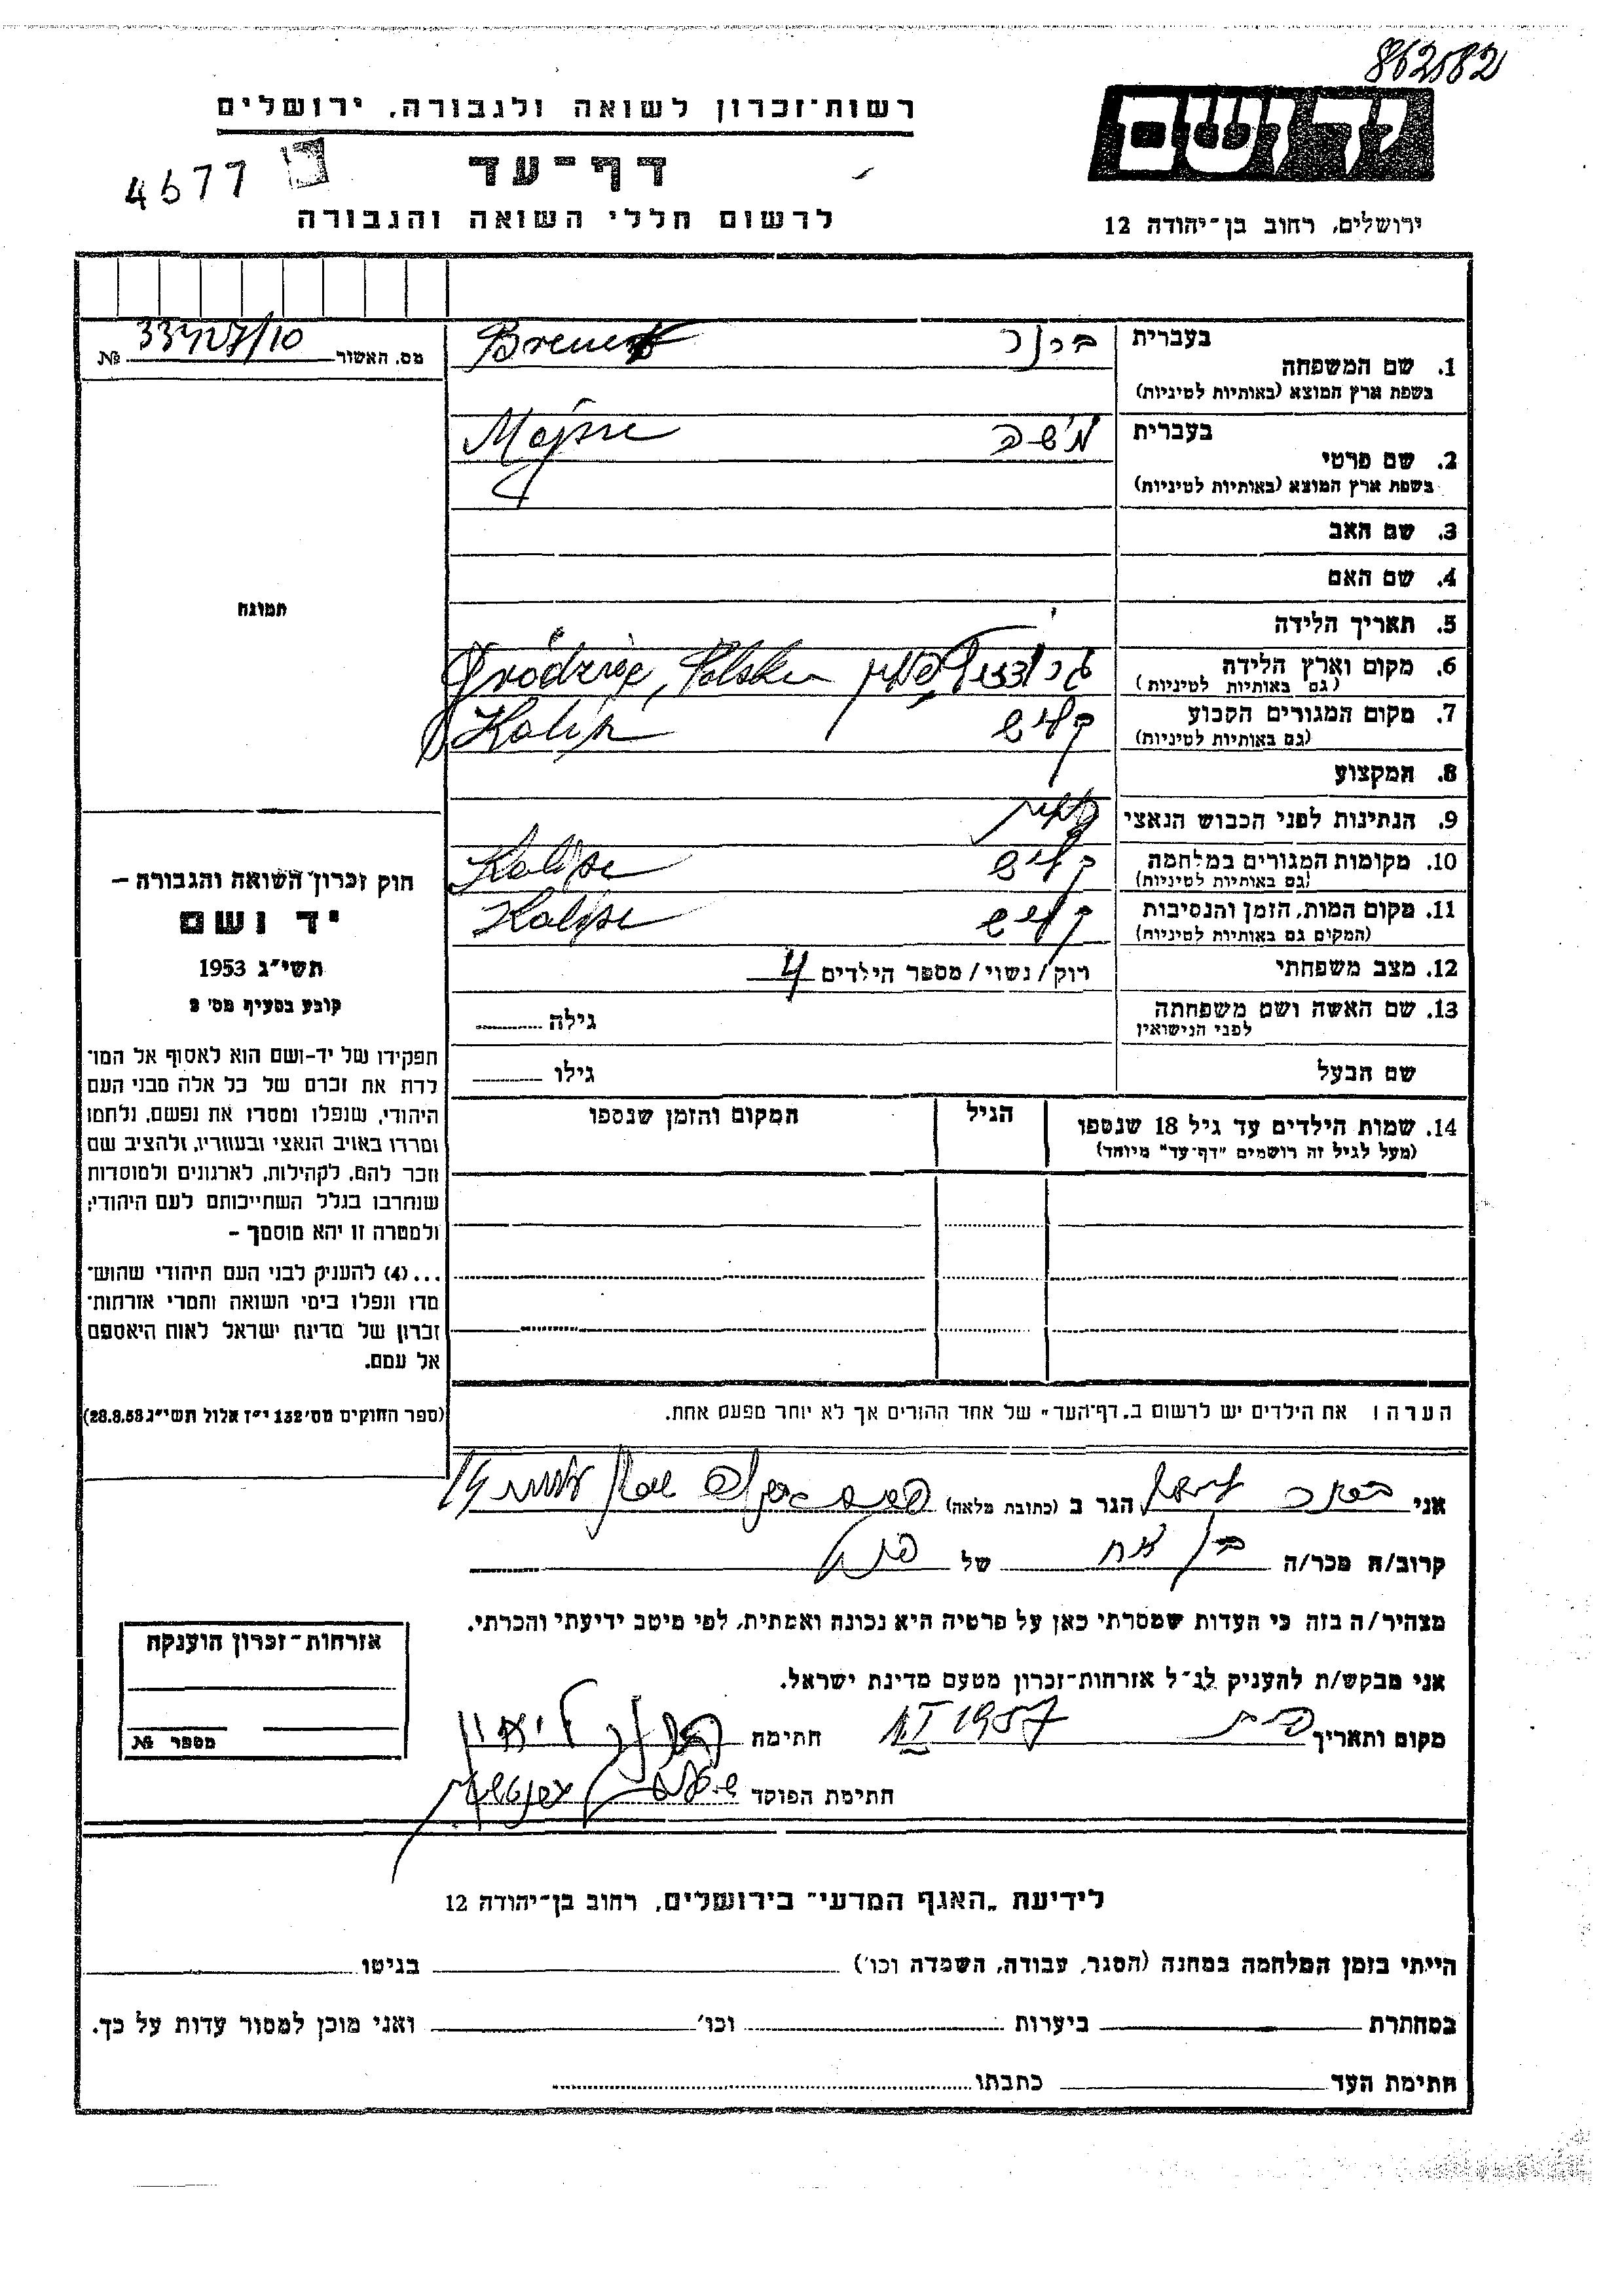 862582
רשות־זכרון לשואה ולגבורה, ירושלים
יד ושם
דף־עד
4677
לרשום חללי השואה והגבורה
ירושלים, רחוב בן־יהודה 12
מס. האשור № 33427/10
1. שם המשפחה
בעברית ברנר Brener
בשפת ארץ המוצא (באותיות לטיניות)
2. שם פרטי
בעברית
Majsze
בשפת ארץ המוצא (באותיות לטיניות)
3. שם האב
4. שם האם
תמונה
5. תאריך הלידה
6. מקום וארץ הלידה Polska
(גם באותיות לטיניות)
7. מקום המגורים הקבוע קליש Kalisz
(גם באותיות לטיניות)
8. המקצוע
9. הנתינות לפני הכבוש הנאצי
10. מקומות המגורים במלחמה קליש Kalisz
(גם באותיות לטיניות)
11. מקום המות, הזמן והנסיבות קליש Kalisz
(המקום גם באותיות לטיניות)
12. מצב משפחתי רוק/נשוי/מספר הילדים 4
13. שם האשה ושם משפחתה גילה
לפני הנישואין
שם הבעל גילו
14. שמות הילדים עד גיל 18 שנספו הגיל המקום והזמן שנספו
(מעל לגיל זה רושמים "דף־עד" מיוחד)
חוק זכרון השואה והגבורה –
יד ושם
תשי״ג 1953
קובע בסעיף מס׳ 2
תפקידו של יד-ושם הוא לאסוף אל המו־
לדת את זכרם של כל אלה מבני העם
היהודי, שנפלו ומסרו את נפשם, נלחמו
ומרדו באויב הנאצי ובעוזריו, ולהציב שם
וזכר להם, לקהילות, לארגונים ולמוסדות
שנחרבו בגלל השתייכותם לעם היהודי;
ולמטרה זו יהא מוסמך –
...(4) להעניק לבני העם היהודי שהוש־
מדו ונפלו בימי השואה והמרי אזרחות־
זכרון של מדינת ישראל לאות היאספם
אל עמם.
(ספר החוקים מס׳ 132 י״ז אלול תשי״ג 28.8.53)
הערה: את הילדים יש לרשום ב„דף־העד״ של אחד ההורים אך לא יותר מפעם אחת.
אני הגר ב (כתובת מלאה)
קרוב/ה מכר/ה בן אח של
מצהיר/ה בזה כי העדות שמסרתי כאן על פרטיה היא נכונה ואמתית, לפי מיטב ידיעתי והכרתי.
אני מבקש/ת להעניק לנ״ל אזרחות־זכרון מטעם מדינת ישראל.
מקום ותאריך 1957 חתימה
חתימת הפוקד
אזרחות־זכרון הוענקה
מספר №
לידיעת „האגף המדעי״ בירושלים, רחוב בן־יהודה 12
הייתי בזמן המלחמה במחנה (הסגר, עבודה, השמדה וכו׳) בגיטו
במחתרת ביערות וכו׳ ואני מוכן למסור עדות על כך.
חתימת העד כתבתו